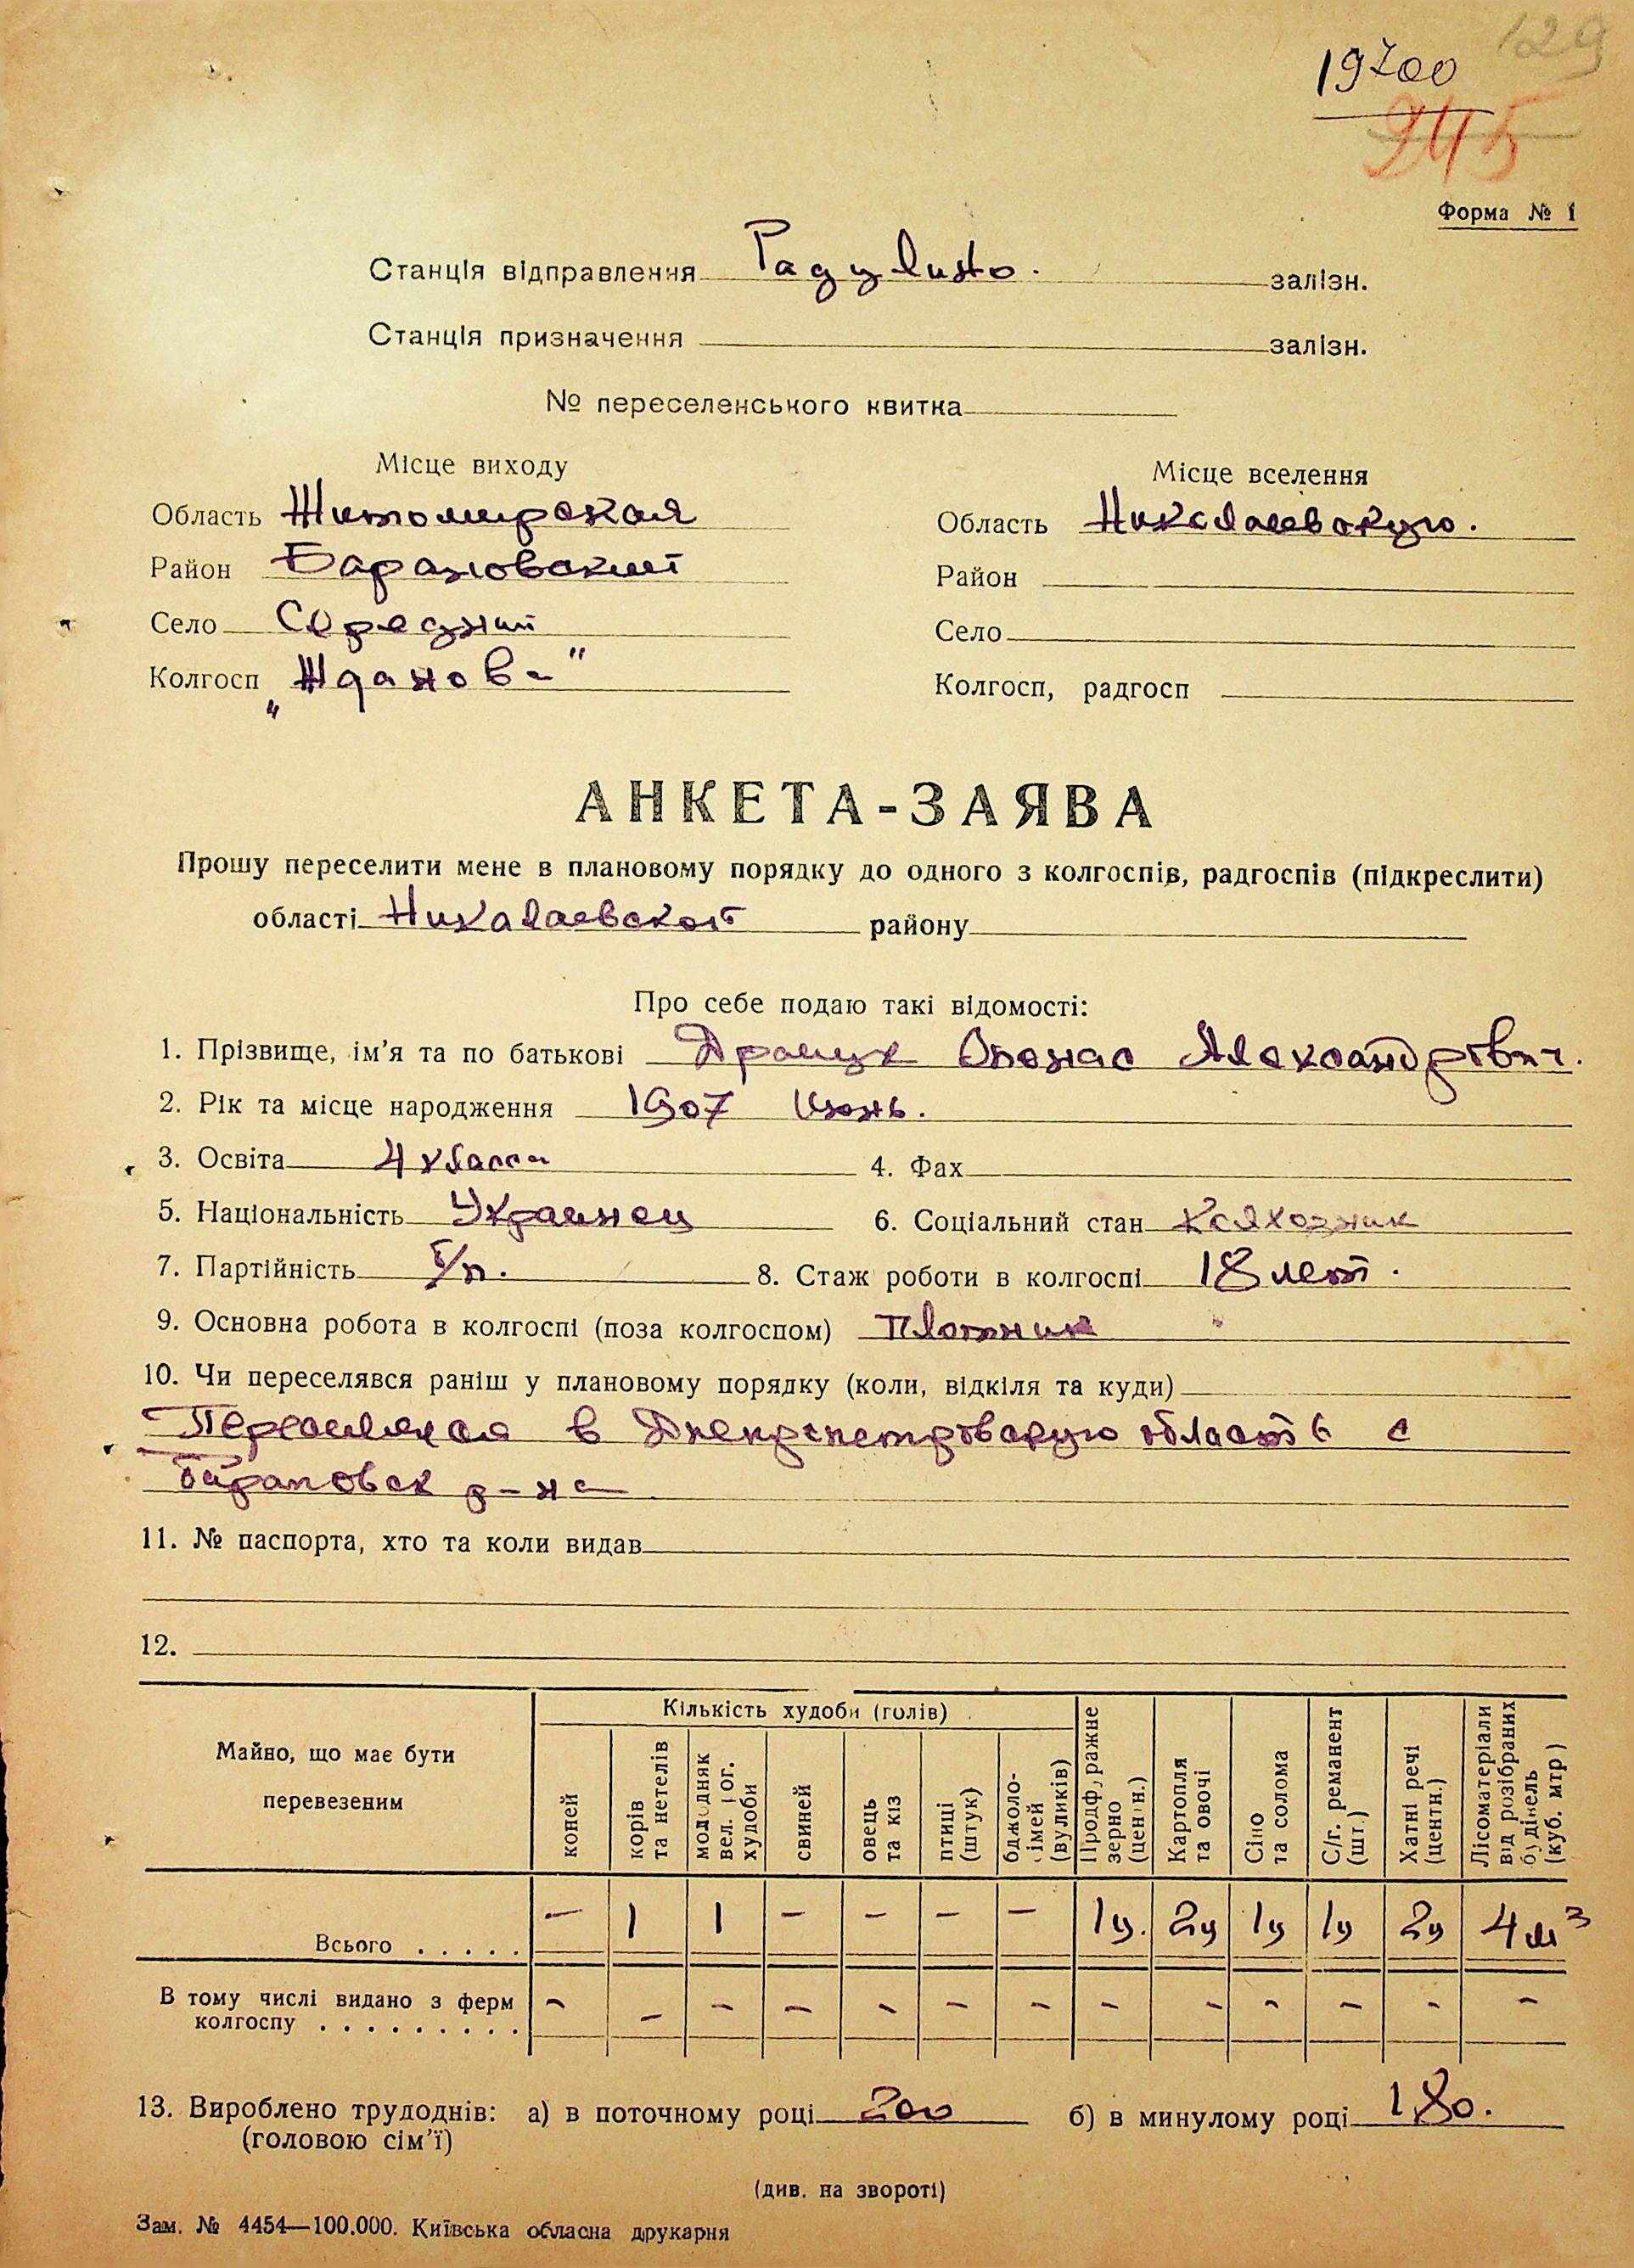 129
19700
245
Форма № 1
Станція відправлення Радулино. залізн.
Станція призначення залізн.
№ переселенського квитка
Місце виходу Місце вселення
Область Житомирская Область Николаевскую.
Район Барановский Район
Село Середний Село
Колгосп „Жданова" Колгосп, радгосп
АНКЕТА-ЗАЯВА
Прошу переселити мене в плановому порядку до одного з колгоспів, радгоспів (підкреслити)
області Никалаевской району
Про себе подаю такі відомості:
1. Прізвище, ім'я та по батькові Опонас Александрович.
2. Рік та місце народження 1907 Июнь.
3. Освіта 4 класса 4. Фах
5. Національність Украинец 6. Соціальний стан Колхозник
7. Партійність б/п. 8. Стаж роботи в колгоспі 18 лет.
9. Основна робота в колгоспі (поза колгоспом) Плотник
10. Чи переселявся раніш у плановому порядку (коли, відкіля та куди)
Переселялся в Днепропетровскую область с
Барановск р-на
11. № паспорта, хто та коли видав
12.
Майно, що має бути перевезеним Кількість худоби (голів)
коней корів та нетелів молодняк вел. рог. худоби свиней овець та кіз птиці (штук) бджоло-сімей (вуликів) Продф,ражне зерно (центн.) Картопля та овочі Сіно та солома С/г. реманент (шт.) Хатні речі (центн.) Лісоматеріали від розібраних будівель (куб. мтр)
Всього . . . . . — 1 1 — — — — 1ц. 2ц 1ц 1ц 2ц 4 м³
В тому числі видано з ферм
колгоспу . . . . . . . . . — — — — — — — — — — — — —
13. Вироблено трудоднів: а) в поточному році 200 б) в минулому році 180.
(головою сім'ї)
(див. на звороті)
Зам. № 4454—100.000. Київська обласна друкарня